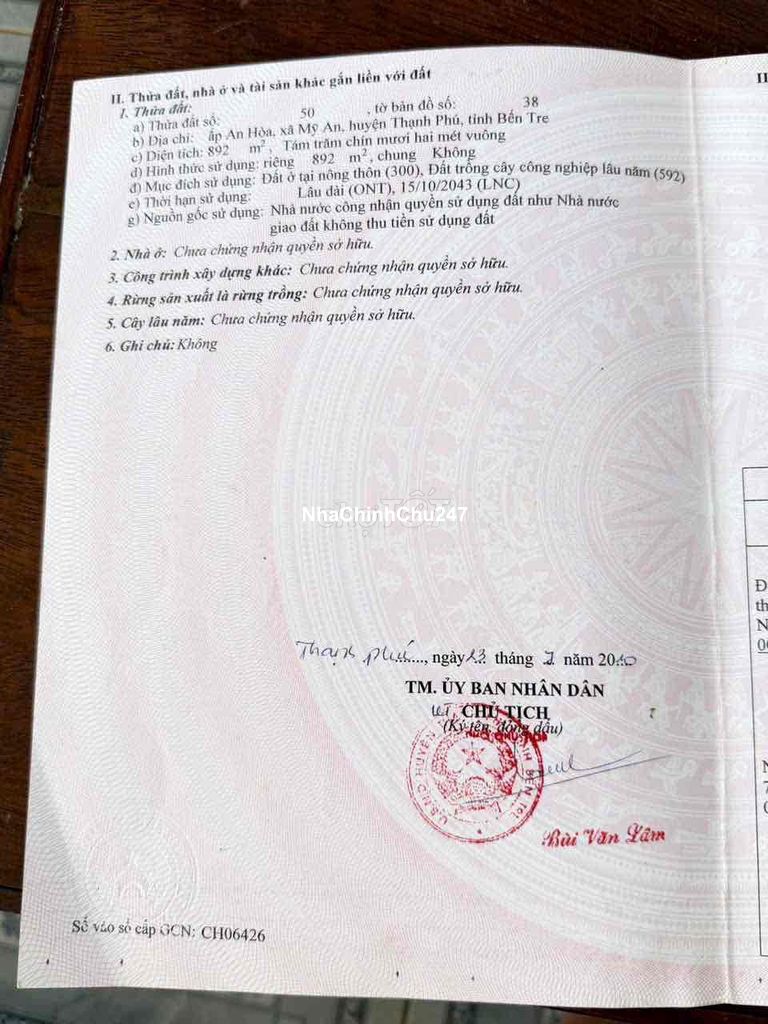 II. Thửa đất, nhà ở và tài sản khác gắn liền với đất
1. Thửa đất:
a) Thửa đất số: 50 , tờ bản đồ số: 38
b) Địa chỉ: ấp An Hòa, xã Mỹ An, huyện Thạnh Phú, tỉnh Bến Tre
c) Diện tích: 892 m², Tám trăm chín mươi hai mét vuông
d) Hình thức sử dụng: riêng 892 m², chung Không
đ) Mục đích sử dụng: Đất ở tại nông thôn (300), Đất trồng cây công nghiệp lâu năm (592)
e) Thời hạn sử dụng: Lâu dài (ONT), 15/10/2043 (LNC)
g) Nguồn gốc sử dụng: Nhà nước công nhận quyền sử dụng đất như Nhà nước
giao đất không thu tiền sử dụng đất
2. Nhà ở: Chưa chứng nhận quyền sở hữu.
3. Công trình xây dựng khác: Chưa chứng nhận quyền sở hữu.
4. Rừng sản xuất là rừng trồng: Chưa chứng nhận quyền sở hữu.
5. Cây lâu năm: Chưa chứng nhận quyền sở hữu.
6. Ghi chú: Không
NhaChinhChu247
Thạnh Phú......, ngày 23 tháng 7 năm 2010
TM. ỦY BAN NHÂN DÂN
KT. CHỦ TỊCH
(Ký tên, đóng dấu)
U.B.N.D HUYỆN
Bùi Văn Lâm
Số vào sổ cấp GCN: CH06426
II
Đ
th
N